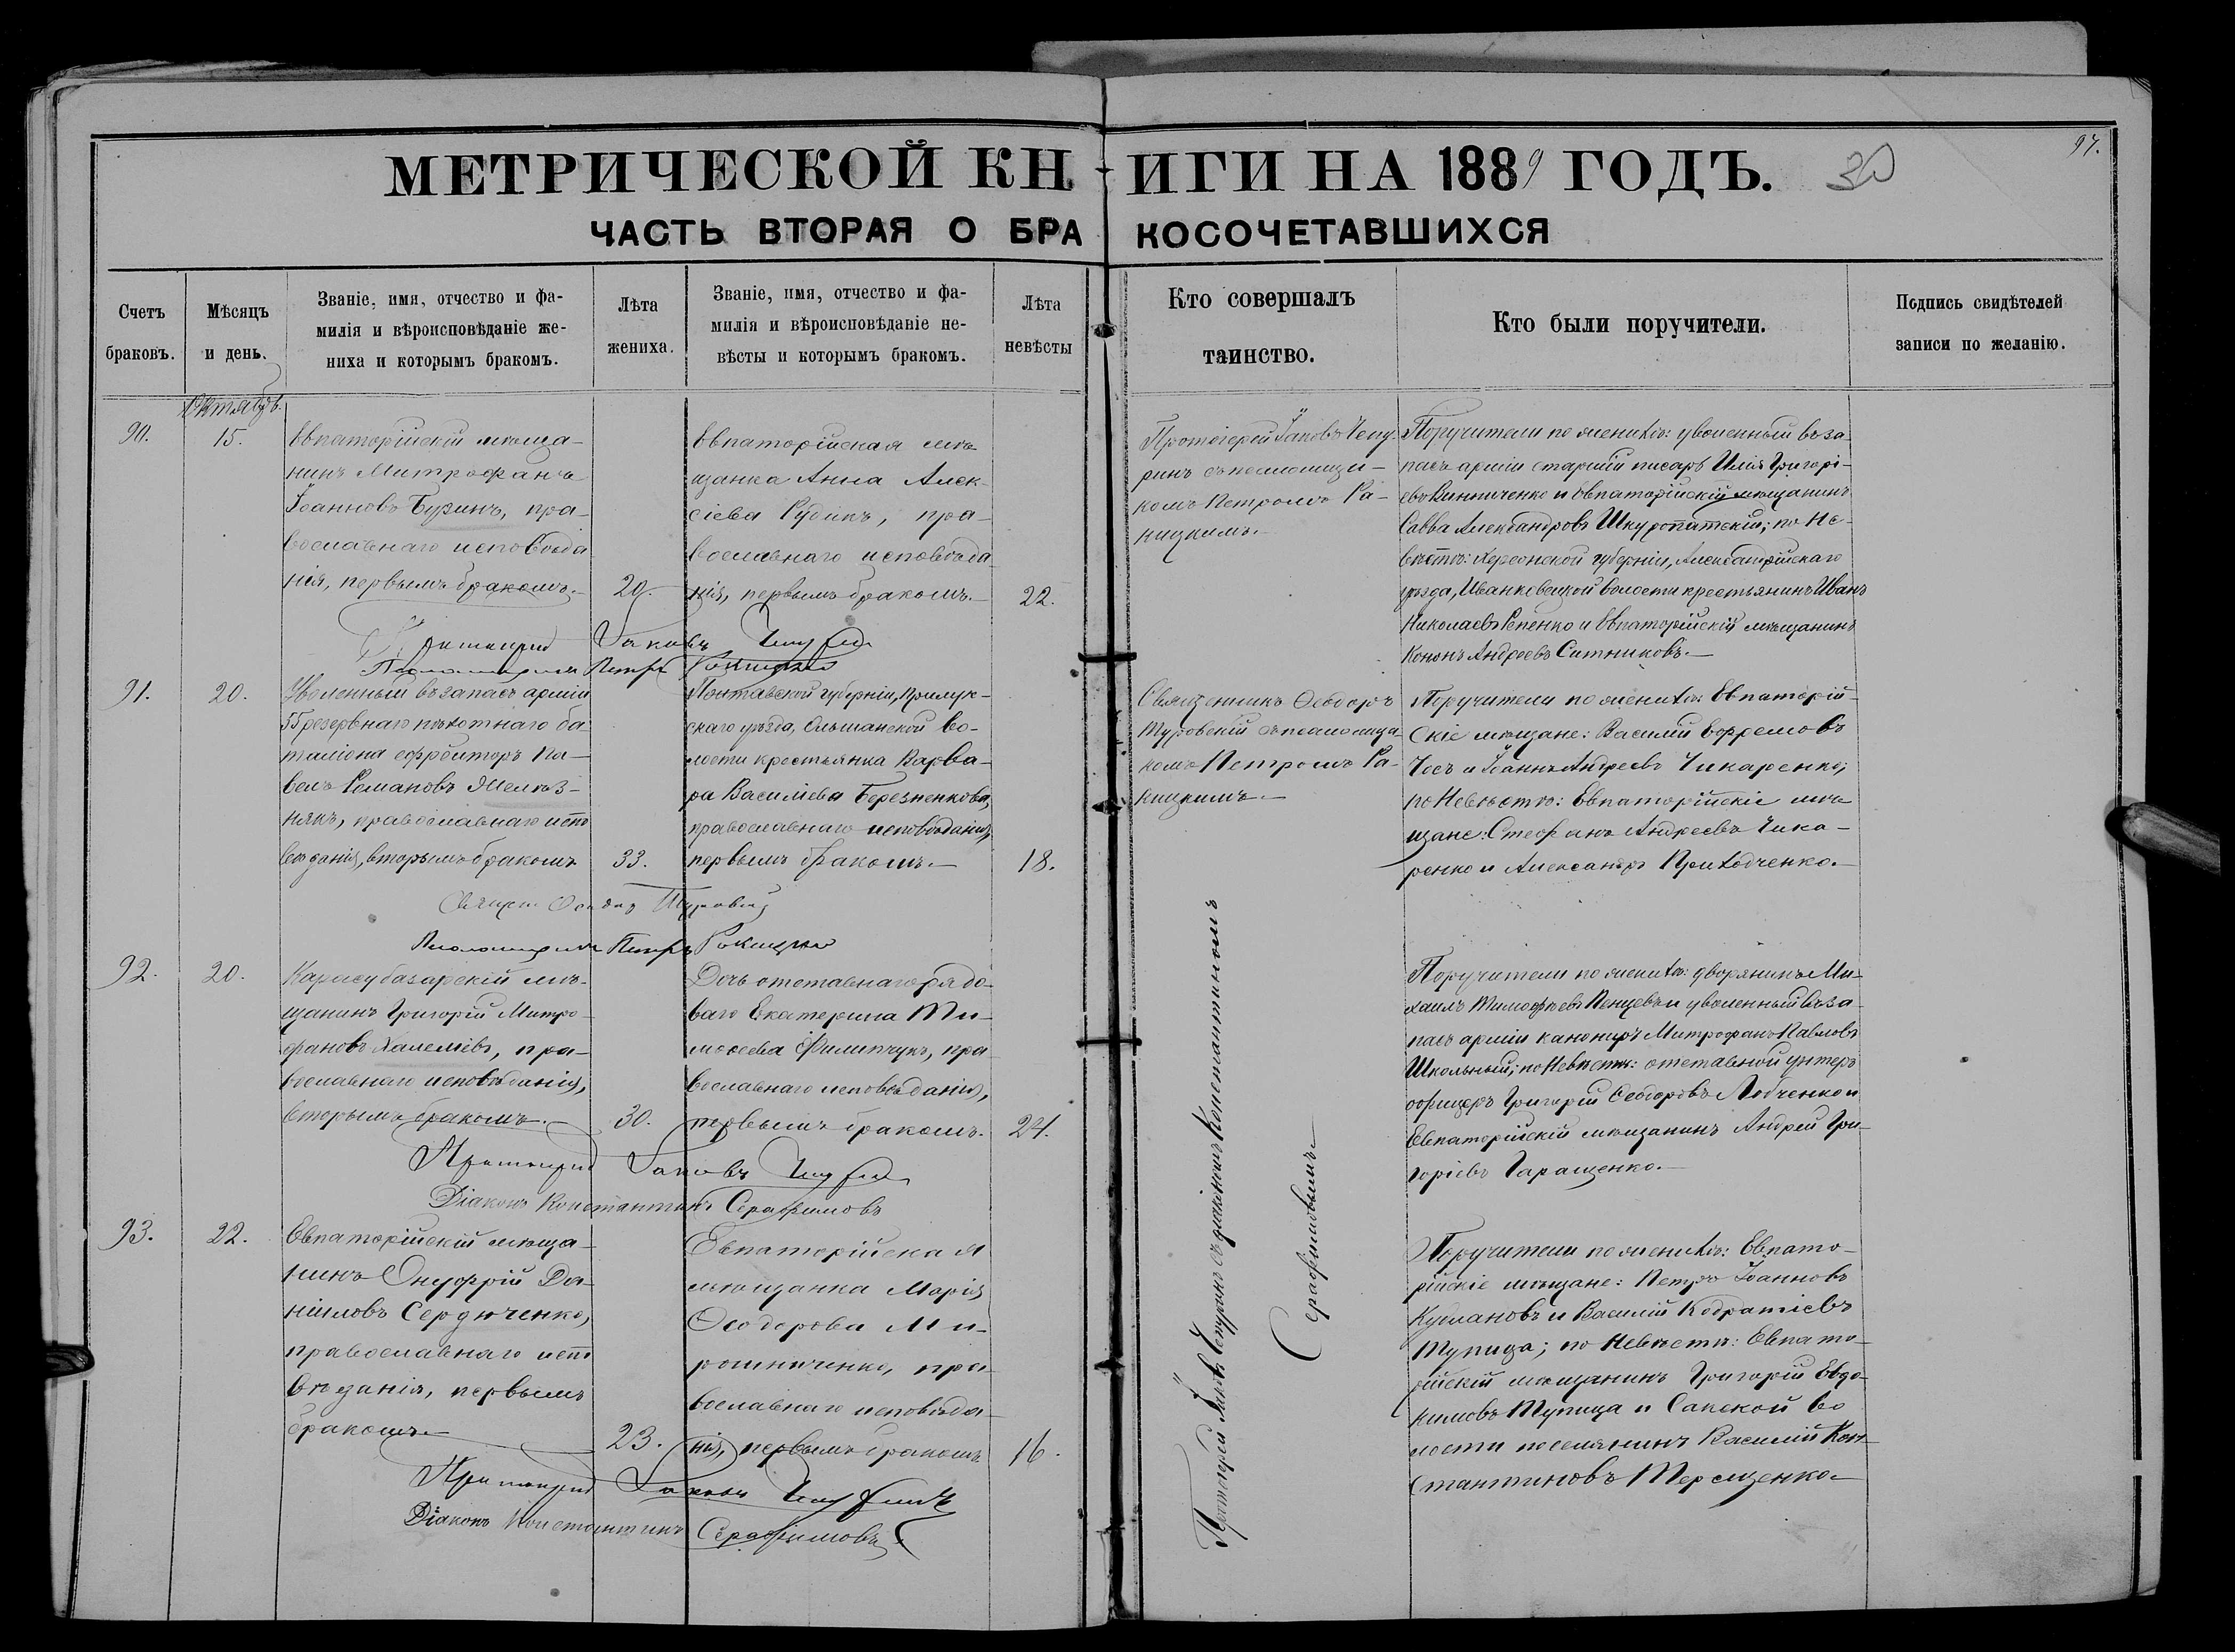 97.
МЕТРИЧЕСКОЙ КНИГИ НА 1889 ГОДЪ. 30
ЧАСТЬ ВТОРАЯ О БРАКОСОЧЕТАВШИХСЯ
Счетъ браковъ.
Мѣсяцъ и день.
Званіе, имя, отчество и фа-
милія и вѣроисповѣданіе же-
ниха и которымъ бракомъ.
Лѣта
жениха.
Званіе, имя, отчество и фа-
милія и вѣроисповѣданіе не-
вѣсты и которымъ бракомъ.
Лѣта
невѣсты
Кто совершалъ
таинство.
Кто были поручители.
Подпись свидѣтелей
записи по желанію.
Октябрь.
90.
15.
Евпаторійскій мѣща-
нинъ Митрофанъ
Іоанновъ Бузинъ, пра-
вославнаго исповѣда
нія, первымъ бракомъ.
20.
Евпаторійская мѣ
щанка Анна Алек-
сіева Рудикъ, пра-
вославнаго исповѣда
нія, первымъ бракомъ.
22.
Протоіерей Іаковъ Чепу-
ринъ съ псаломщи-
комъ Петромъ Ра-
кицкимъ.
Поручители по женихѣ: уволенный въ за-
пасъ арміи старшій писарь Илія Григорі-
евъ Винниченко и Евпаторійскій мѣщанинъ
Савва Александровъ Шкуропатскій; по Не-
вѣстѣ: Херсонской губерніи, Александрійскаго
уѣзда, Иванковецкой волости крестьянинъ Иванъ
Николаевъ Репенко и Евпаторійскій мѣщанинъ
Кононъ Андреевъ Ситниковъ.
Протоіерей Іаковъ Чепуринъ
Псаломщикъ Петръ Ракицкій
91.
20.
Уволенный въ запасъ арміи
55 резервнаго пѣхотнаго ба
таліона ефрейторъ Па-
велъ Романовъ Желѣз-
някъ, православнаго испо
вѣданія, вторымъ бракомъ
33.
Полтавской губерніи, Прилук-
скаго уѣзда, Ольшанской во-
лости крестьянка Варва-
ра Василіева Березненкова,
православнаго исповѣданія,
первымъ бракомъ.
18.
Священникъ Ѳеодоръ
Туровскій съ псаломщи-
комъ Петромъ Ра-
кицкимъ.
Поручители по женихѣ: Евпаторій-
скіе мѣщане: Василій Ефремовъ
Чосъ и Іоаннъ Андреевъ Чикаренко;
по Невѣстѣ: Евпаторійскіе мѣ
щане: Стефанъ Андреевъ Чика-
ренко и Александръ Приходченко.
Священ. Ѳеодоръ Туровскій
Псаломщикъ Петръ Ракицкій
92.
20.
Карасубазарскій мѣ-
щанинъ Григорій Митро-
фановъ Халеліевъ, пра-
вославнаго исповѣданія,
вторымъ бракомъ.
30.
Дочь отставнаго рядо-
ваго Екатерина Ти-
моѳеева Филипчукъ, пра-
вославнаго исповѣданія,
первымъ бракомъ.
24.
Протоіерей Іаковъ Чепуринъ съ діакономъ Константиномъ
Серафимовымъ
Поручители по женихѣ: дворянинъ Ми-
хаилъ Тимофѣевъ Пенцевъ и уволенный въ за-
пасъ арміи канониръ Митрофанъ Павловъ
Школьный; по Невѣстѣ: отставной унтеръ
офицеръ Григорій Ѳеодоровъ Лобченко и
Евпаторійскій мѣщанинъ Андрей Гри-
горіевъ Таращенко.
Протоіерей Іаковъ Чепуринъ
Діаконъ Константинъ Серафимовъ
93.
22.
Евпаторійскій мѣща-
нинъ Онуфрій Да-
ніиловъ Сердюченко,
православнаго испо
вѣданія, первымъ
бракомъ.
23.
Евпаторійская
мѣщанка Марія
Ѳеодорова Ми-
рошниченко, пра-
вославнаго исповѣда-
нія, первымъ бракомъ
16.
Поручители по женихѣ: Евпато-
рійскіе мѣщане: Петръ Іоанновъ
Кузмановъ и Василій Кодратіевъ
Тупица; по Невѣстѣ: Евпато-
рійскій мѣщанинъ Григорій Евдо-
кимовъ Тупица и Сакской во
лости поселянинъ Василій Кон-
стантиновъ Терещенко.
Протоіерей Іаковъ Чепуринъ
Діаконъ Константинъ Серафимовъ